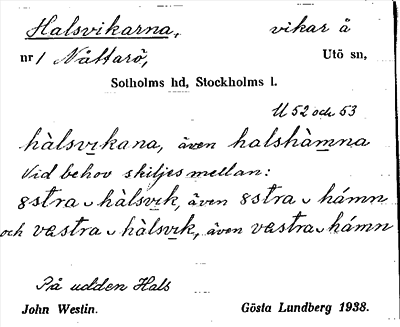 Halsvikarna, vikar å
nr 1 Nåttarö, Utö sn,
Sotholms hd, Stockholms l.
U 52 och 53
hàlsvikana, även halshàmna
Vid behov skiljes mellan:
8stra ᴗ hàlsvik, även 8stra ᴗ hámn
och västra ᴗ hàlsvik, även västra ᴗ hámn
På udden Hals
John Westin. Gösta Lundberg 1938.